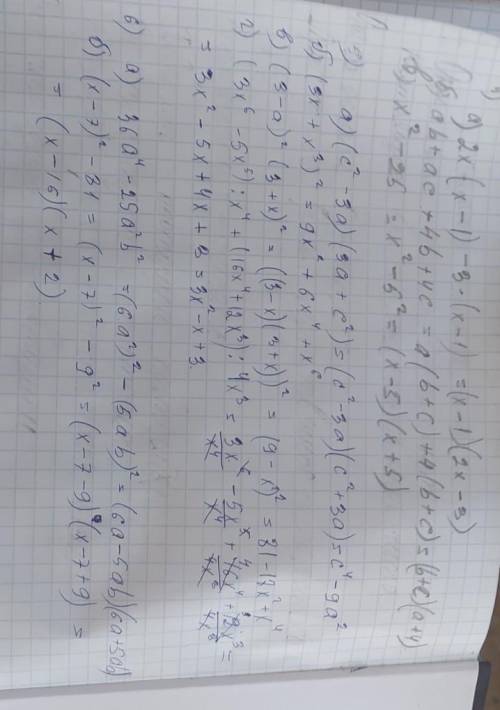 а) 2x·(x-1) -3·(x-1) = (x-1)(2x-3)
б) ab+ac+4b+4c = a(b+c)+4(b+c) = (b+c)(a+4)
в) x²-25 = x²-5² = (x-5)(x+5)
а) (c²-3a)(3a+c²) = (c²-3a)(c²+3a) = c⁴-9a²
б) (3x+x³)² = 9x²+6x⁴+x⁶
в) (3-a)²(3+x)² = ((3-x)(3+x))² = (9-x²)² = 81-18x²+x⁴
г) (3x⁶-5x⁵):x⁴+(16x⁴+12x³):4x³ = 3x⁶/x⁴ - 5x⁵/x⁴ + 16x⁴/4x³ + 12x³/4x³ =
= 3x²-5x+4x+3 = 3x²-x+3
6) а) 36a⁴-25a²b² = (6a²)²-(5ab)² = (6a-5ab)(6a+5ab)
б) (x-7)²-81 = (x-7)²-9² = (x-7-9)(x-7+9) =
= (x-16)(x+2)